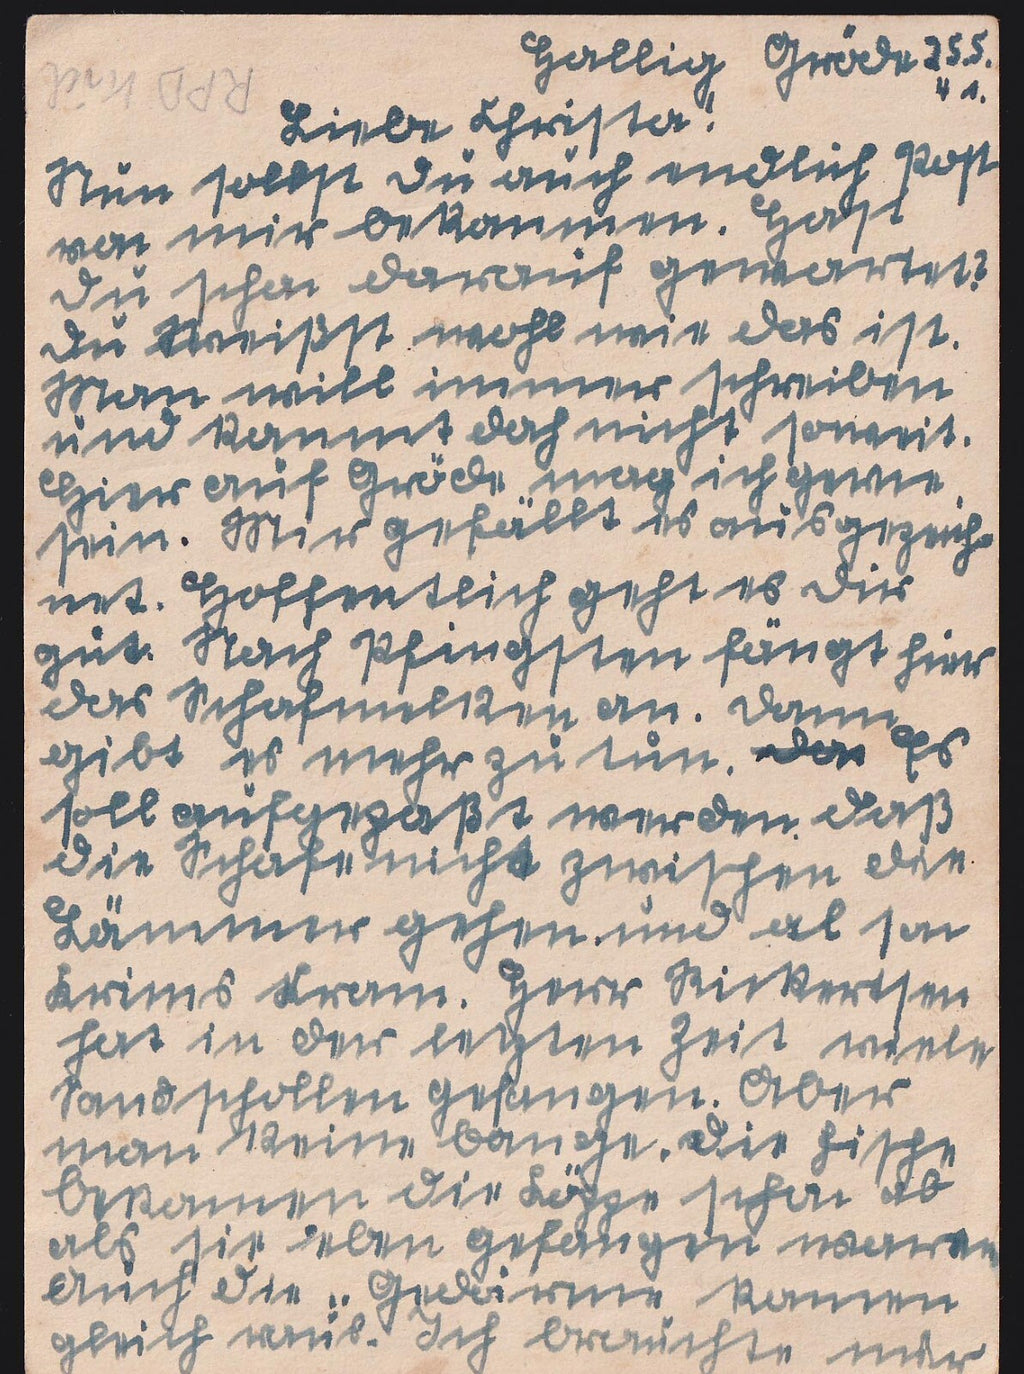 Hallig Gröde 25.5.
41.
RPD Kiel
Liebe Christa!
Nun sollst du auch endlich Post
von mir bekommen. Hast
du schon darauf gewartet?
Du weißst wohl wie das ist.
Man will immer schreiben
und kommt doch nicht soweit.
Hier auf Gröde mag ich gerne
sein. Mir gefällt es ausgezeich-
net. Hoffentlich geht es dir
gut. Nach Pfingsten fängt hier
das Schafmelken an. Dann
gibt es mehr zu tun. Es
soll aufgepaßt werden daß
die Schafe nicht zwischen die
Lämmer gehen und al son
Krims Kram. Herr Rickertsen
hat in der letzten Zeit viele
Sandschollen gefangen. Aber
man keine bange. Die Fische
bekamen die Köppe schon ab
als sie eben gefangen waren
Auch die Gedärme kamen
gleich raus. Ich brauchte nur